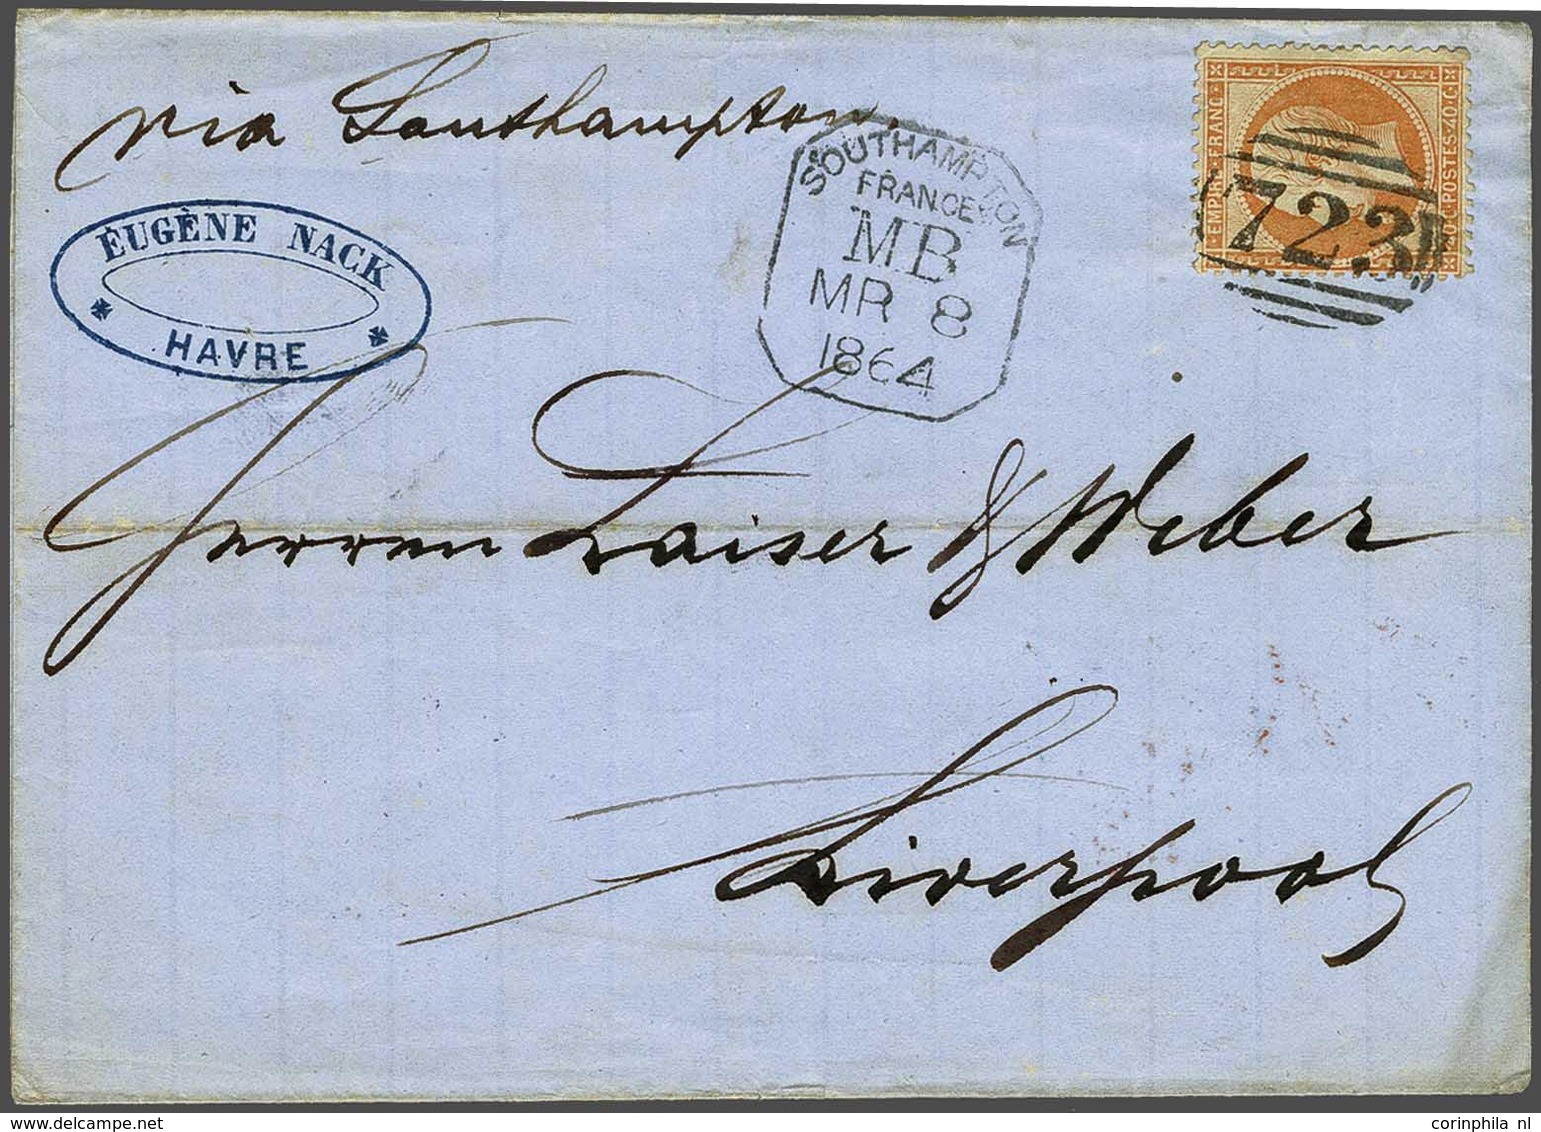 via Southampton.
EUGÈNE NACK
HAVRE
SOUTHAMPTON
FRANCE
MB
MR 8
1864
EMPIRE FRANC
40 C POSTES 40 C
723
Herren Kaiser & Weber
Liverpool
corinphila nl